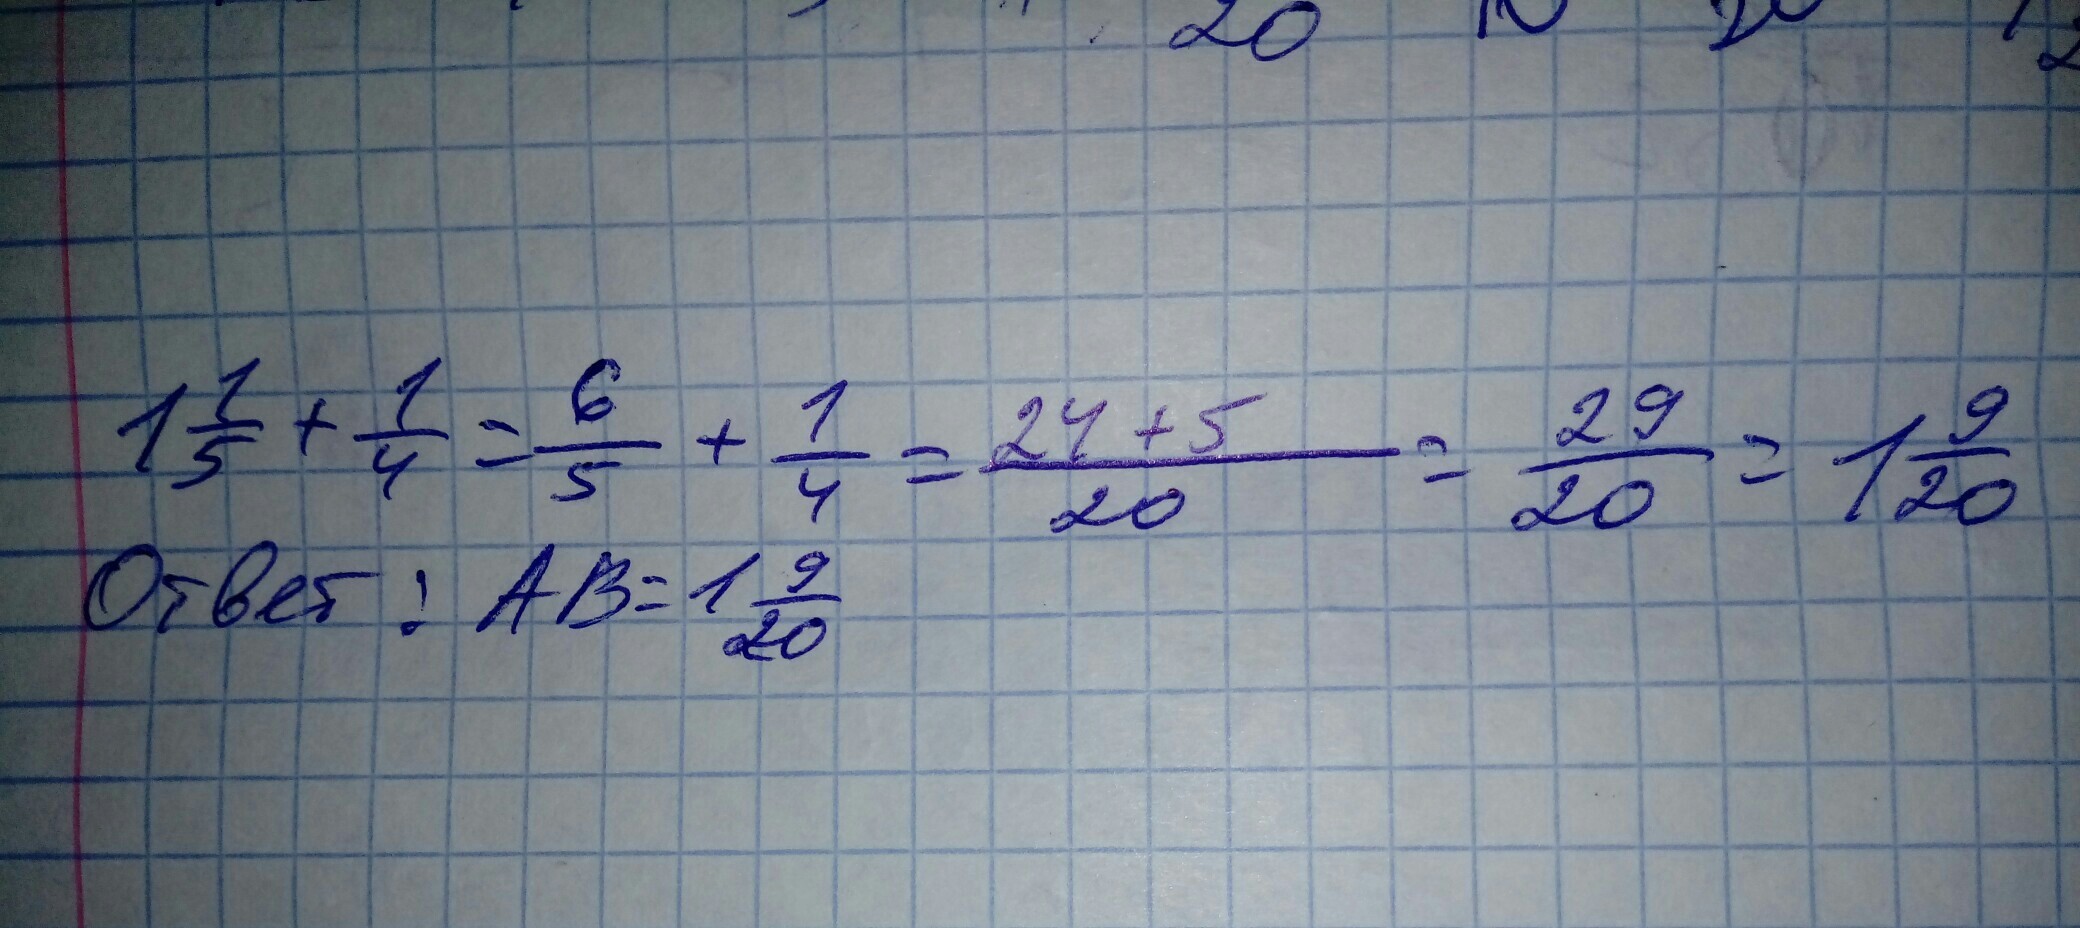 20
1 1/5 + 1/4 = 6/5 + 1/4 = 24+5/20 = 29/20 = 1 9/20
Ответ: AB = 1 9/20